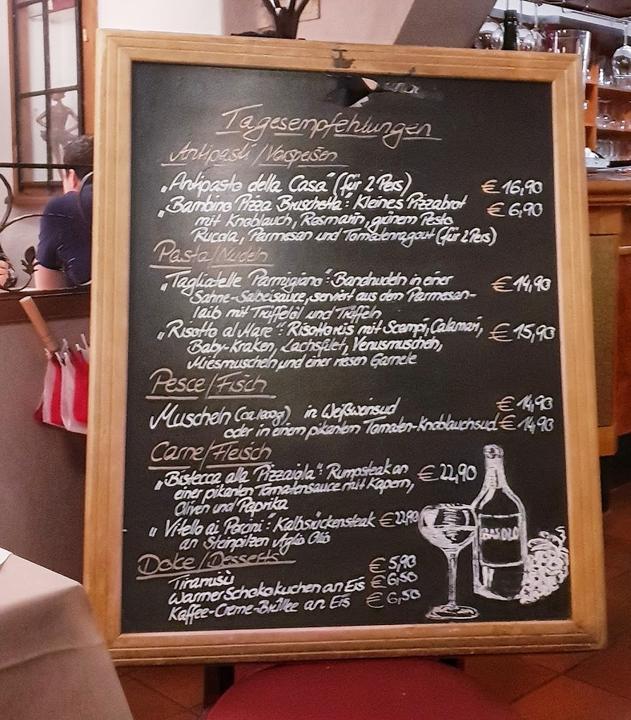 Tagesempfehlungen
Antipasti/Vorspeisen
"Antipasto della Casa" (für 2 Pers) € 16,90
"Bambino Pizza Bruschetta: Kleines Pizzabrot € 6,90
mit Knoblauch, Rosmarin, grünem Pesto
Rucola, Parmesan und Tomatenragout (für 2 Pers)
Pasta/Nudeln
"Tagliatelle Parmigiano": Bandnudeln in einer € 14,90
Sahne-Salbeisauce, serviert aus dem Parmesan-
laib mit Trüffelöl und Trüffeln
"Risotto al Mare": Risottoreis mit Scampi, Calamari, € 15,90
Baby-Kraken, Lachsfilet, Venusmuscheln,
Miesmuscheln und einer riesen Garnele
Pesce/Fisch
Muscheln (ca. 1000g) in Weißweinsud € 14,90
oder in einem pikanten Tomaten-Knoblauchsud € 14,90
Carne/Fleisch
"Bistecca alla Pizzaiola": Rumpsteak an € 22,90
einer pikanten Tomatensauce mit Kapern,
Oliven und Paprika
"Vitello ai Porcini": Kalbsrückensteak € 22,90
an Steinpilzen Aglio Olio
Dolce/Desserts
Tiramisù € 5,90
Warmer Schokokuchen an Eis € 6,50
Kaffee-Creme-Brûllee an Eis € 6,50